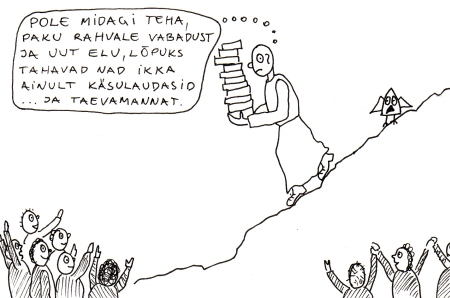 POLE MIDAGI TEHA,
PAKU RAHVALE VABADUST
JA UUT ELU, LÕPUKS
TAHAVAD NAD IKKA
AINULT KÄSULAUDASID
... JA TAEVAMANNAT.